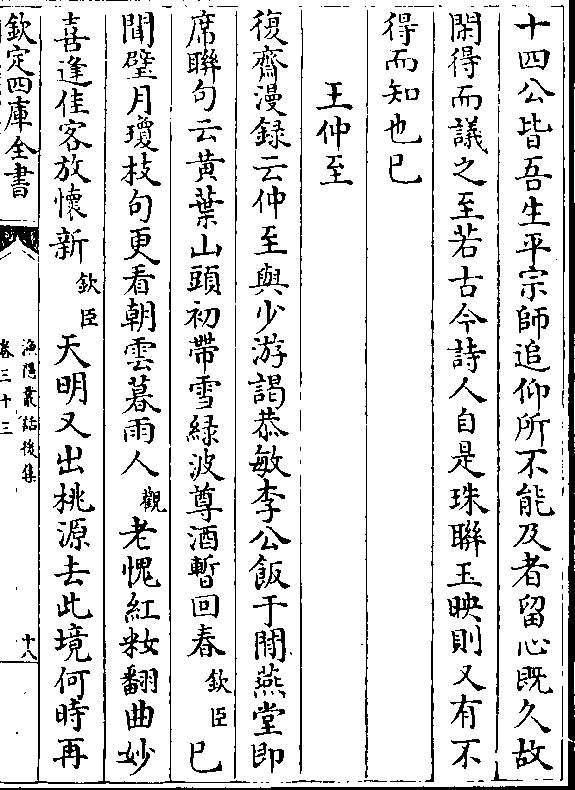 十四公皆吾生平宗師追仰所不能及者留心既久故
閑得而議之至若古今詩人自是珠聯玉映則又有不
得而知也已
王仲至
復齋漫録云仲至與少游謁恭敏李公飯于閒燕堂即
席聯句云黄葉山頭初帶雪緑波尊酒暫回春欽臣已
聞璧月瓊枝句更看朝雲暮雨人觀老愧紅粧翻曲妙
喜逢佳客放懷新欽臣天明又出桃源去此境何時再
欽定四庫全書
漁隱叢話後集
卷三十三
十八